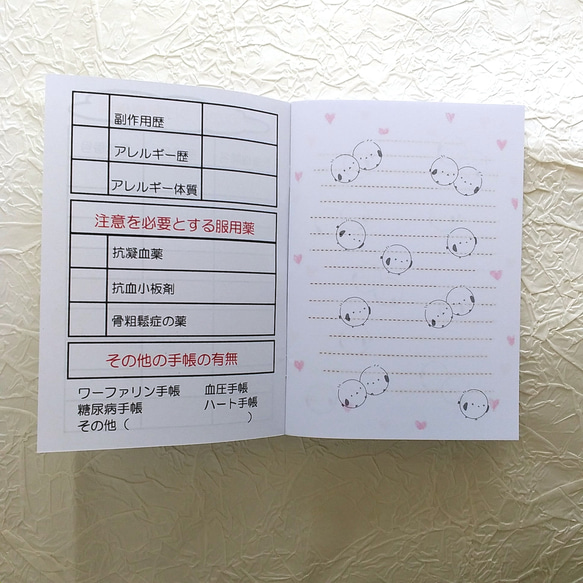 副作用歴
アレルギー歴
アレルギー体質
注意を必要とする服用薬
抗凝血薬
抗血小板剤
骨粗鬆症の薬
その他の手帳の有無
ワーファリン手帳　血圧手帳
糖尿病手帳　ハート手帳
その他（　）